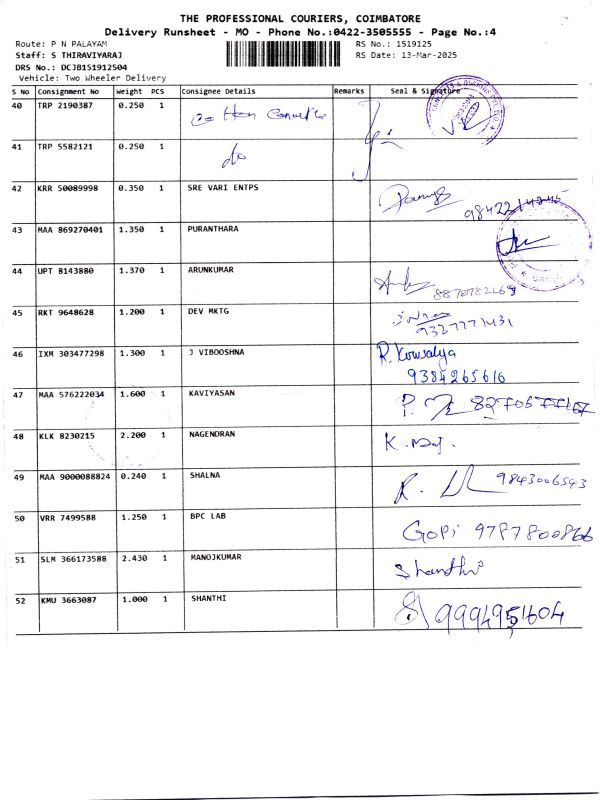 THE PROFESSIONAL COURIERS, COIMBATORE
Delivery Runsheet - MO - Phone No.:0422-3505555 - Page No.:4
Route: P N PALAYAM RS No.: 1519125
Staff: S THIRAVIYARAJ RS Date: 13-Mar-2025
DRS No.: DCJB151912504
Vehicle: Two Wheeler Delivery
S No Consignment No Weight PCS Consignee Details Remarks Seal & Signature
40 TRP 2190387 0.250 1
41 TRP 5582121 0.250 1 do
42 KRR 50089998 0.350 1 SRE VARI ENTPS
43 MAA 869270401 1.350 1 PURANTHARA
44 UPT 8143880 1.370 1 ARUNKUMAR
8870782169
45 RKT 9648628 1.200 1 DEV MKTG
9327771431
46 IXM 303477298 1.300 1 J VIBOOSHNA R. Kowsalya
9384265616
47 MAA 576222034 1.600 1 KAVIYASAN
48 KLK 8230215 2.200 1 NAGENDRAN
49 MAA 9000088824 0.240 1 SHALNA 9843006543
50 VRR 7499588 1.250 1 BPC LAB GOPi 9787800866
51 SLM 366173588 2.430 1 MANOJKUMAR Shanthi
52 KMU 3663087 1.000 1 SHANTHI 9994951604